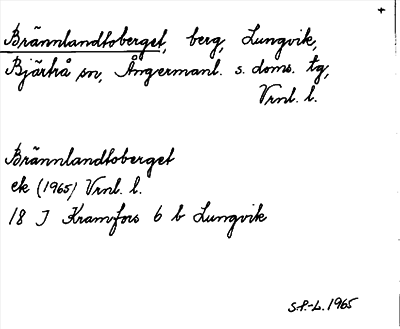 Brännlandtoberget, berg, Lungvik,
Bjärtrå sn, Ångermanl. s. doms. tg,
Vrnl. l.
Brännlandtoberget
ek (1965) Vrnl. l.
18 J Kramfors 6 b Lungvik
S.P.-L. 1965